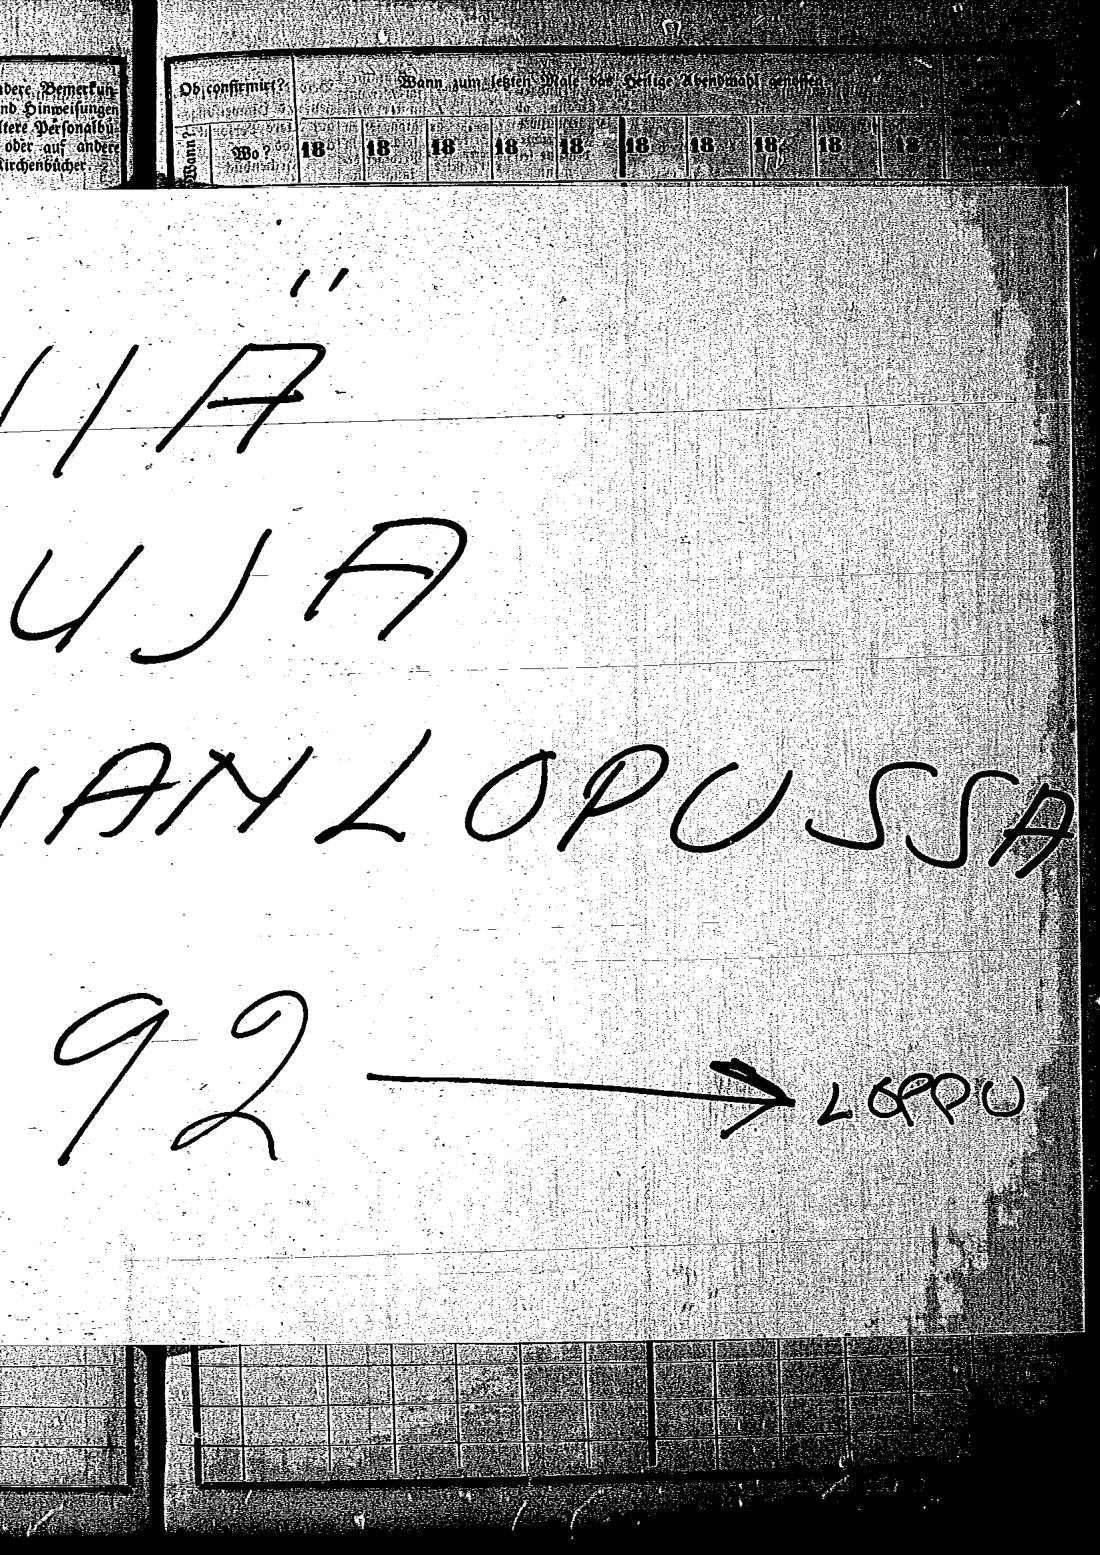 ndere Bemerkun-
nd Hinweisungen
ltere Personalbü-
oder auf andere
Kirchenbücher.
Ob confirmirt?
Wann?
Wo?
Wann zum letzten Male das Heilige Abendmahl genossen?
18 18 18 18 18 18 18 18 18 18
IIÄ
UJA
IAN LOPUSSA
92 → LOPPU